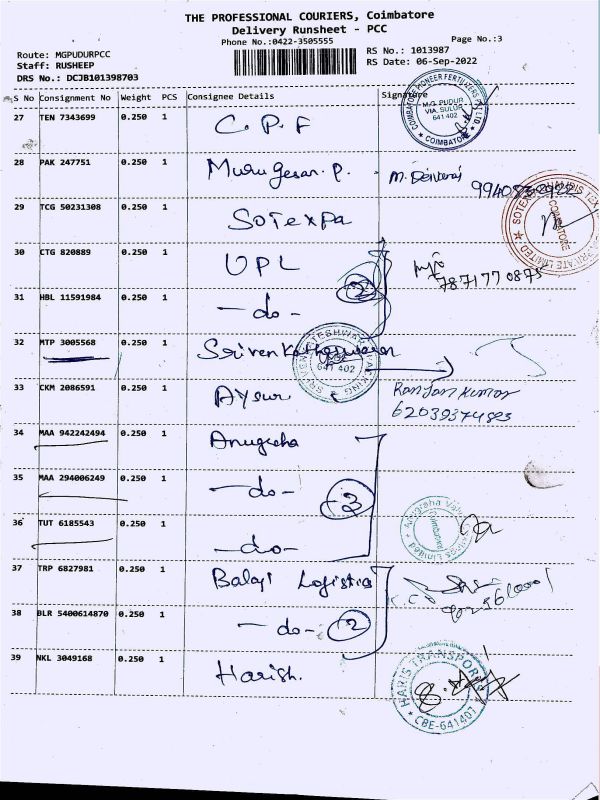 THE PROFESSIONAL COURIERS, Coimbatore
Delivery Runsheet - PCC
Phone No.:0422-3505555
Page No.:3
Route: MGPUDURPCC
RS No.: 1013987
Staff: RUSHEEP
RS Date: 06-Sep-2022
DRS No.: DCJB101398703
S No Consignment No Weight PCS Consignee Details Signature
27 TEN 7343699 0.250 1 C.P.F
COIMBATORE PIONEER FERTILIZERS PVT LTD
M.G. PUDUR
VIA. SULUR
641 402
COIMBATORE
28 PAK 247751 0.250 1 Murugesan.P.
29 TCG 50231308 0.250 1 SOTEXPA
SOTEXPA PRIVATE LIMITED
COIMBATORE
30 CTG 820889 0.250 1 UPL
7871770875
31 HBL 11591984 0.250 1 -do-
2
32 MTP 3005568 0.250 1
641 402
33 CKM 2086591 0.250 1
Ranjan Kumar
34 MAA 942242494 0.250 1 Anugraha
35 MAA 294006249 0.250 1 -do-
3
36 TUT 6185543 0.250 1 -do-
Anugraha
Coimbatore
Limited
37 TRP 6827981 0.250 1 Balaji Logistics
38 BLR 5400614870 0.250 1 -do- 2
39 NKL 3049168 0.250 1 Harish.
HARIS TRANSPORTS
CBE-641407